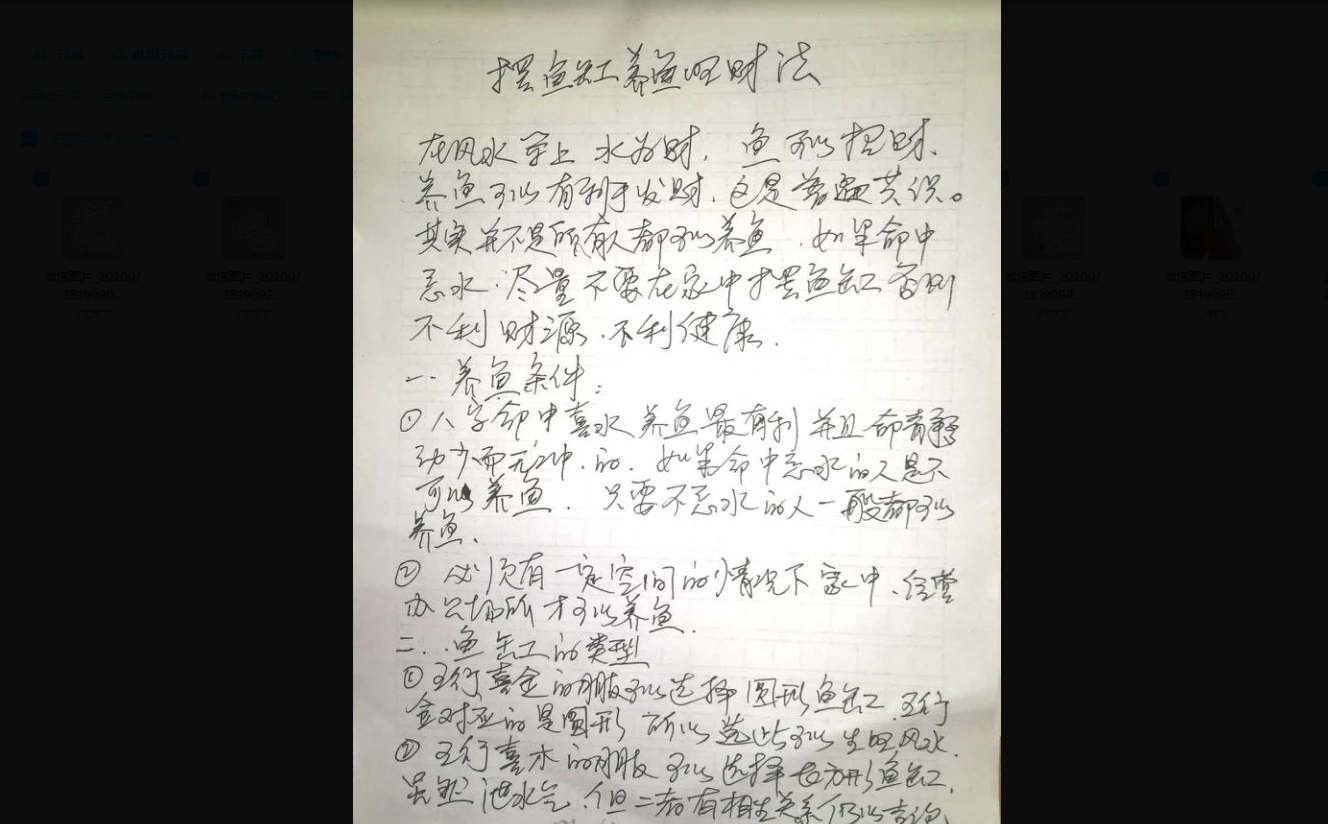 摆鱼缸养鱼旺财法
在风水学上 水为财，鱼可以招财、
养鱼可以有利于发财，这是普遍共识。
其实并不是所有人都可以养鱼，如果命中
忌水，尽量不要在家中摆鱼缸否则
不利财源、不利健康。
一、养鱼条件：
①八字命中喜水 养鱼最有利 并且命
动少而无冲的。如果命中忌水的人是不
可以养鱼。只要不忌水的人一般都可以
养鱼、
② 必须有一定空间的情况下家中、经营
办公场所才可以养鱼。
二、鱼缸的类型
①五行喜金的朋友可以选择圆形鱼缸 五行
金对应的是圆形 所以选此可以生旺风水.
②五行喜木的朋友可以选择长方形鱼缸，
虽然泄水气，但二者有相生关系仍以吉论、
微信图片_202007
2819092...
微信图片_202007
2819094...
微信图片_202007
2819095...